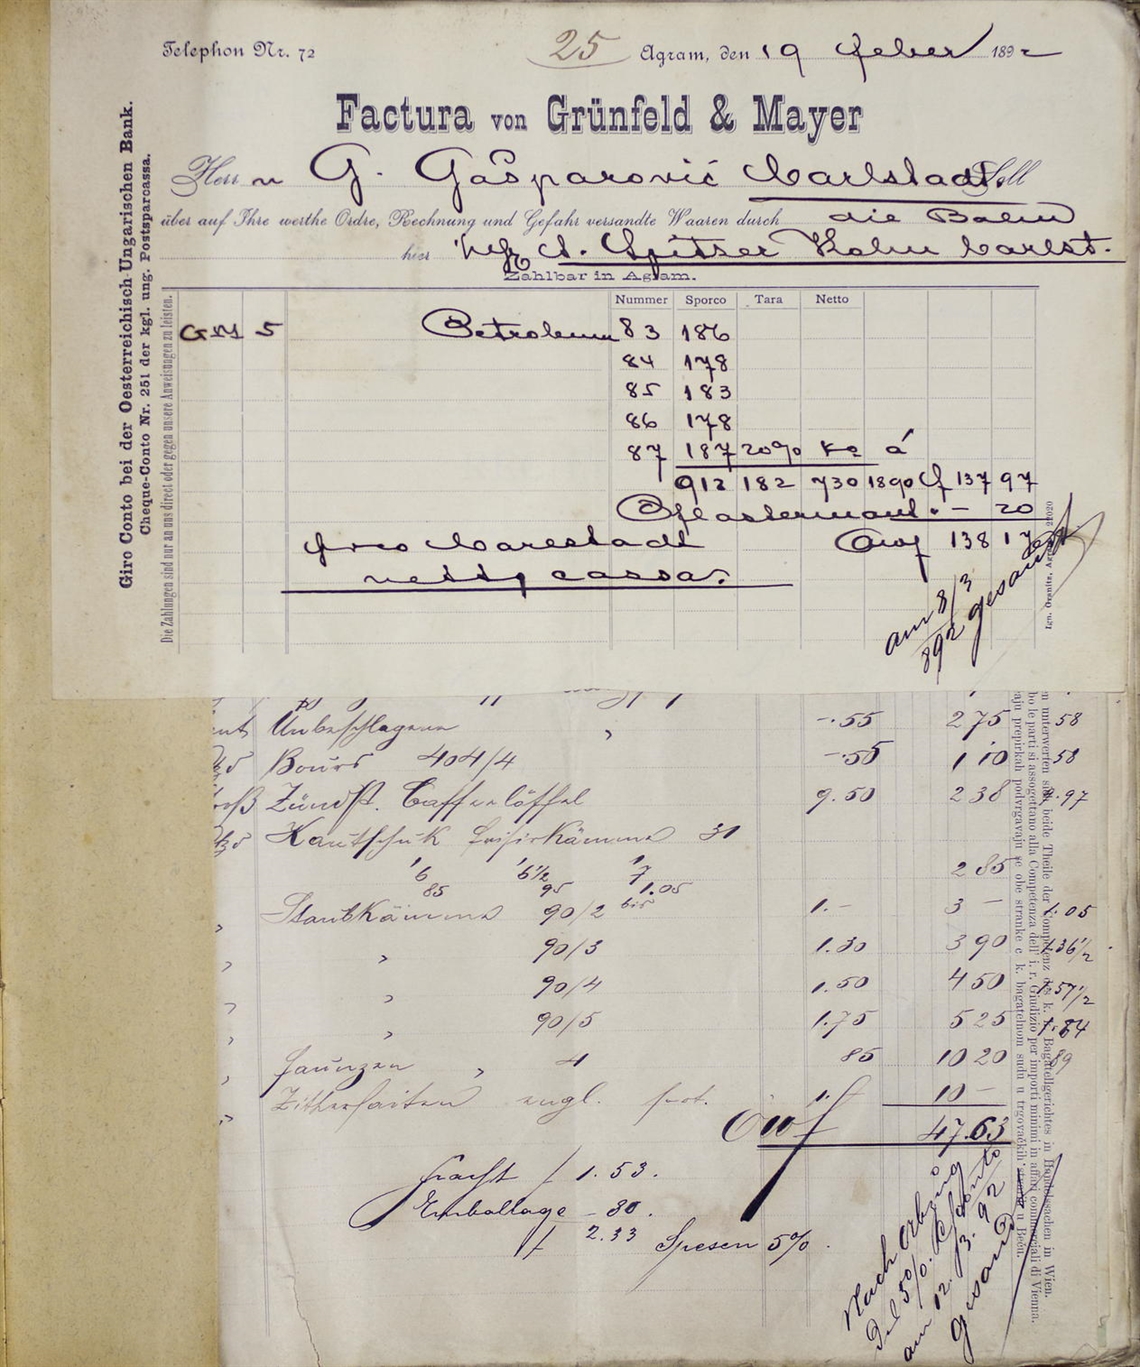 Telephon Nr. 72
25 Agram, den 19 Feber 1892
Factura von Grünfeld & Mayer
Herrn G. Gašparović Carlstadt. Soll
über auf Ihre werthe Ordre, Rechnung und Gefahr versandte Waaren durch die Bahn
hier A. Spitzer Kohn Carlst.
Zahlbar in Agram.
Giro Conto bei der Oesterreichisch-Ungarischen Bank.
Cheque-Conto Nr. 251 der kgl. ung. Postsparcassa.
Die Zahlungen sind nur an uns direct oder gegen unsere Anweisungen zu leisten.
Nummer Sporco Tara Netto
G M 5 Petroleum 83 186
84 178
85 183
86 178
87 187 20% Ko à
912 182 730 1890 f 137 97
Pflastermaut - 20
franco Carlstadt 138 17
netto cassa.
am 8/3
892 gesandt
Unbeschlagene " -.55 2 75 .58
Bours 404/4 -55 1 10 .58
Zündst. Caffeelöffel 9.50 2 38 9.97
Kautschuk frisirkämme 31
6 6½ 7 2 85
85 95 1.05
Staubkämme 90/2 1.- 3 - 1.05
" 90/3 1.30 3 90 1.36½
" 90/4 1.50 4 50 1.57½
" 90/5 1.75 5 25 1.84
" 4 85 10 20 89
Zithersaiten engl. 1. 10 -
47.63
fracht f 1.53.
Emballage - 80.
f 2.33 Spesen 5%.
Nach Abzug
5%. Sconto
am 12. /3. 92
gesandt